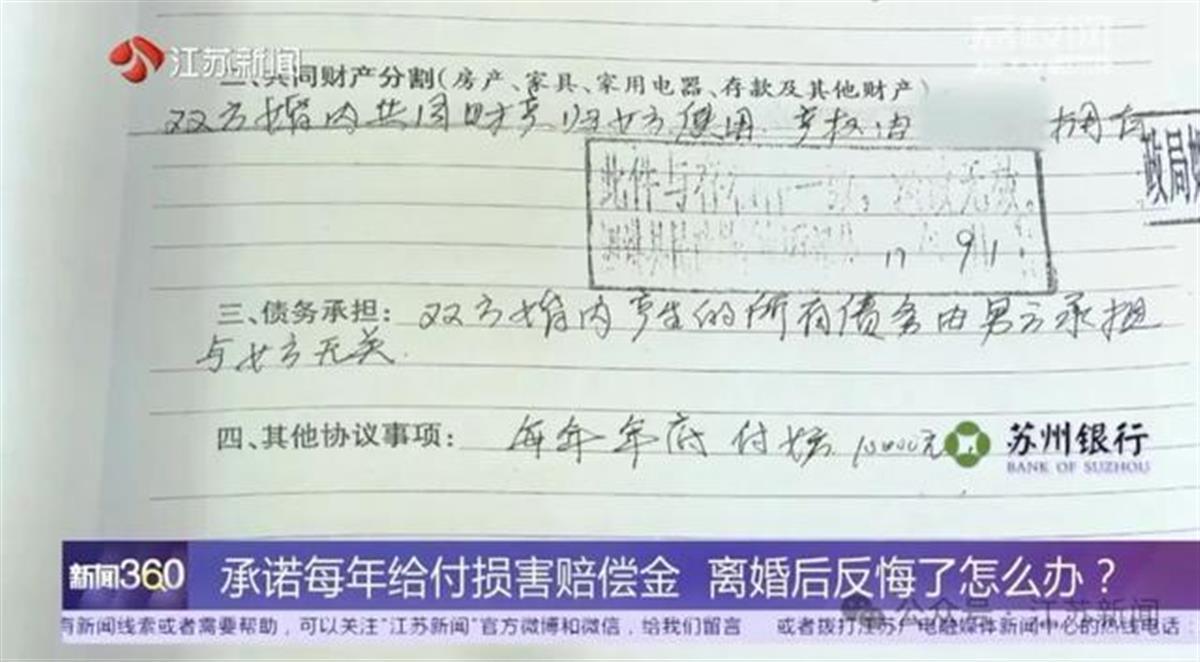 江苏新闻
二、共同财产分割(房产、家具、家用电器、存款及其他财产)
双方婚内共同财产归女方使用.产权由 拥有
此件与存 一致,
政局婚
9
三、债务承担: 双方婚内产生的所有债务由男方承担
与女方无关.
四、其他协议事项: 每年年底付 10000元
苏州银行
BANK OF SUZHOU
新闻360 承诺每年给付损害赔偿金 离婚后反悔了怎么办?
公众号·江苏新闻
有新闻线索或者需要帮助,可以关注"江苏新闻"官方微博和微信,给我们留言 或者拨打江苏广电融媒体新闻中心的热线电话: